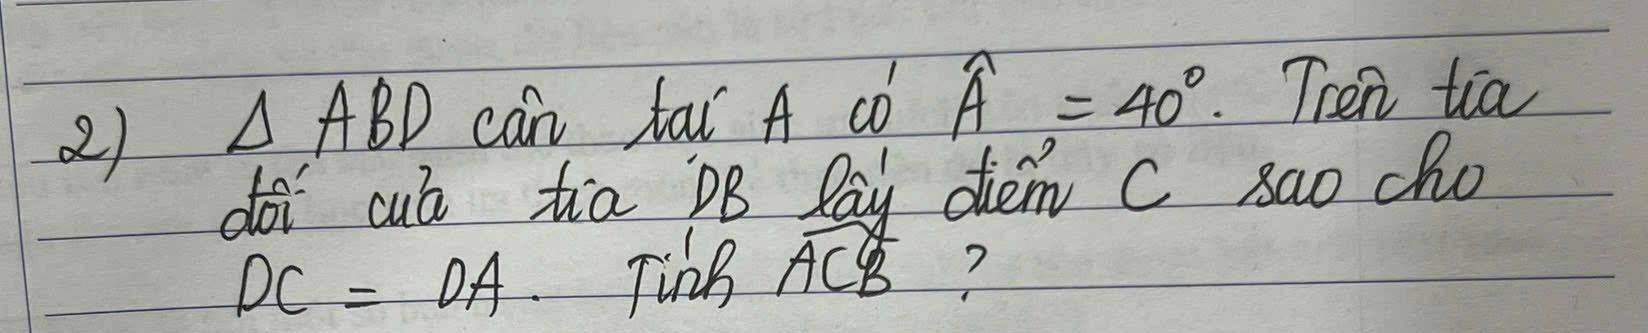 2) Δ ABD cân tại A có Â = 40°. Trên tia
đối của tia DB lấy điểm C sao cho
DC = DA. Tính ACB ?